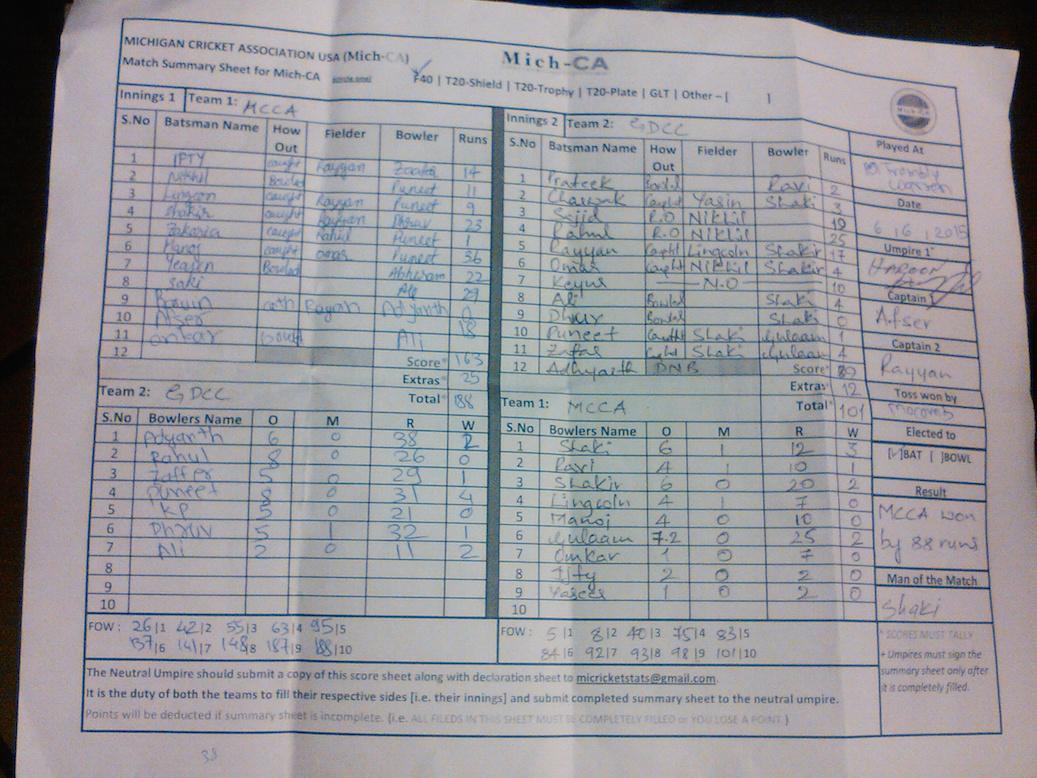 MICHIGAN CRICKET ASSOCIATION USA (Mich-CA)
Mich-CA
Match Summary Sheet for Mich-CA
F40 | T20-Shield | T20-Trophy | T20-Plate | GLT | Other – [ ]
Innings 1 Team 1: MCCA
S.No Batsman Name How Out Fielder Bowler Runs
1 IFTY caught Rayyan 14
2 Nikhil Bowled Puneet 11
3 caught Rayyan Puneet 9
4 Shakir caught Rayyan Dhruv 23
5 Zakaria caught Rahul Puneet 1
6 Manoj caught omar Puneet 36
7 Bowled 22
8 Saki Ali 29
9
10 Afser 18
11 Ali
12
Score* 163
Extras* 25
Total* 188
Team 2: GDCC
S.No Bowlers Name O M R W
1 Adyanth 6 0 38
2 Rahul 8 0 26 0
3 Zaffer 5 0 29 1
4 Puneet 8 0 31 4
5 KP 5 0 21 0
6 Dhruv 5 1 32 1
7 Ali 2 0 11 2
8
9
10
FOW : 26|1 42|2 55|3 63|4 95|5
137|6 141|7 148|8 187|9 188|10
Innings 2 Team 2: GDCC
S.No Batsman Name How Out Fielder Bowler Runs
1 Prateek Bowled Ravi 2
2 Caught Yasin Shaki 3
3 Sajid R.O Nikhil 19
4 Rahul R.O Nikhil 25
5 Rayyan Caught Lingcoln Shakir 17
6 Omar Caught Nikhil Shakir 4
7 Keyur N.O 10
8 Ali Bowled Shaki 4
9 Dhruv Bowled Shaki 0
10 Puneet Caught Shaki Gulaam 1
11 Zafar Caught Shaki Gulaam 4
12 Adhyanth DNB
Score* 89
Extras* 12
Total* 101
Team 1: MCCA
S.No Bowlers Name O M R W
1 Shaki 6 1 12 3
2 Ravi 4 1 10 1
3 Shakir 6 0 20 2
4 Lingcoln 4 1 7 0
5 Manoj 4 0 10 0
6 Gulaam 7.2 0 25 2
7 Omkar 1 0 7 0
8 Ifty 2 0 2 0
9 1 0 2 0
10
FOW : 5|1 8|2 40|3 75|4 83|5
84|6 92|7 93|8 98|9 101|10
Played At
Warren
Date
6|6|2015
Umpire 1*
HAROON
Captain 1
Afser
Captain 2
Rayyan
Toss won by
Elected to
[✓]BAT [ ]BOWL
Result
MCCA won
by 88 runs
Man of the Match
Shaki
* SCORES MUST TALLY
+ Umpires must sign the
summary sheet only after
it is completely filled.
The Neutral Umpire should submit a copy of this score sheet along with declaration sheet to micricketstats@gmail.com.
It is the duty of both the teams to fill their respective sides [i.e. their innings] and submit completed summary sheet to the neutral umpire.
Points will be deducted if summary sheet is incomplete. [i.e. ALL FILEDS IN THIS SHEET MUST BE COMPLETELY FILLED or YOU LOSE A POINT.]
38